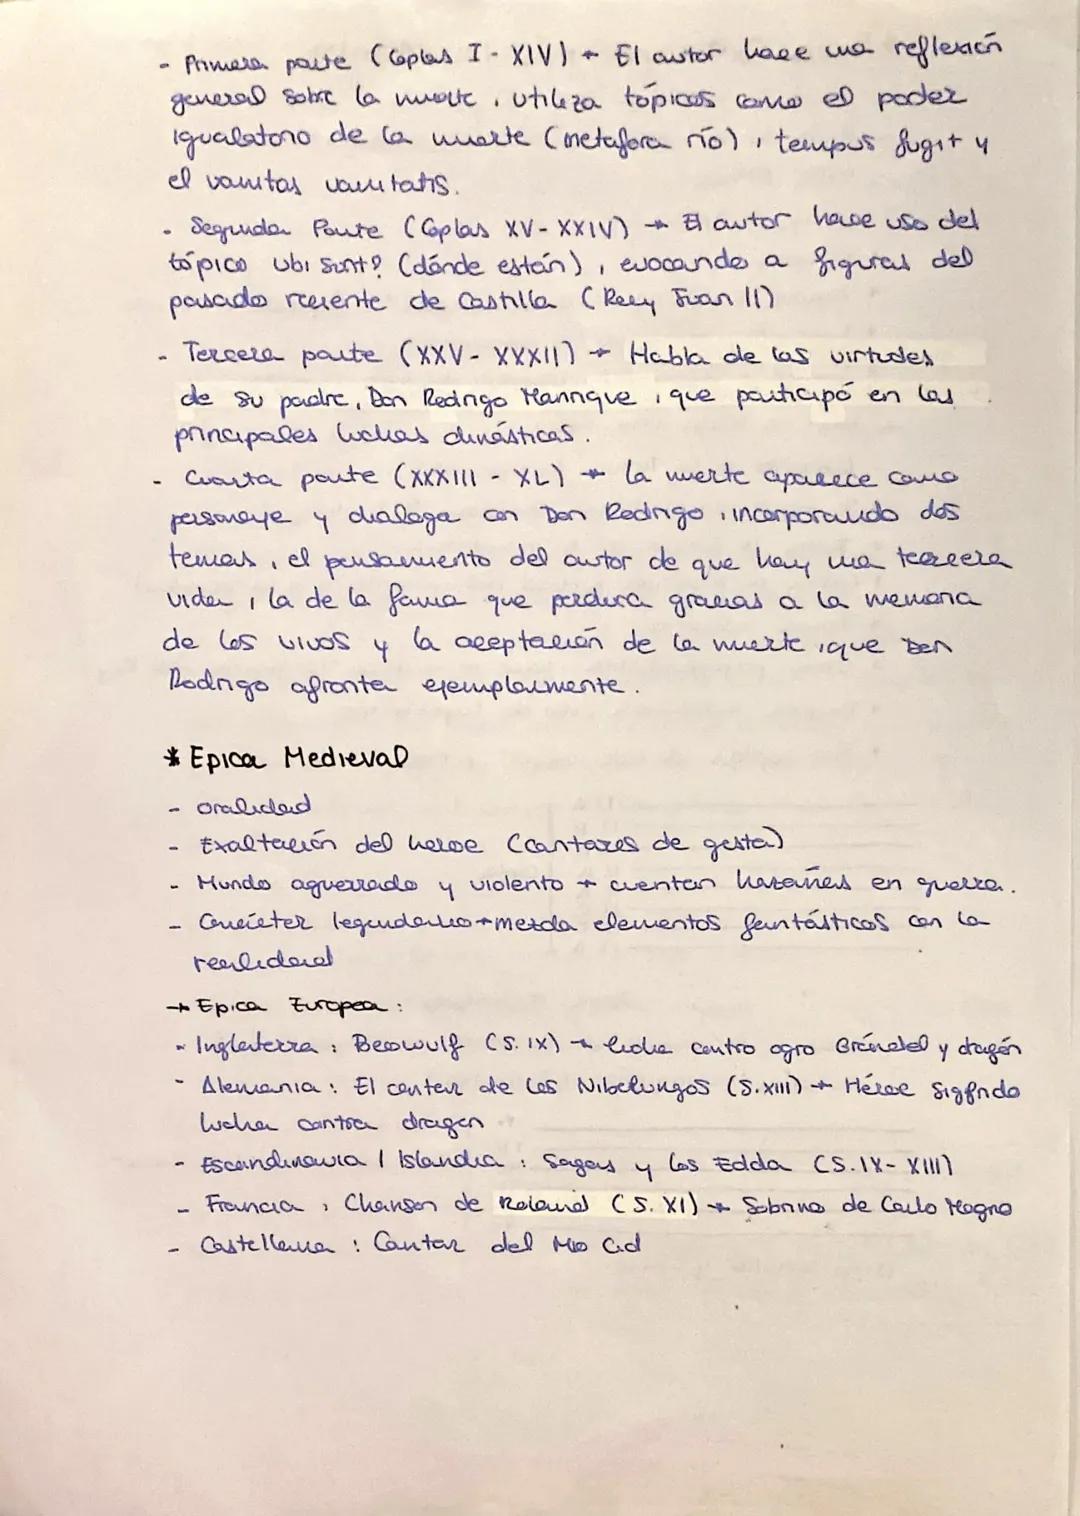 - Primera parte (Coplas I - XIV) → El autor hace una reflexión
general sobre la muerte, utiliza tópicos como el poder
igualatorio de la muerte (metafora río), tempus fugit y
el vanitas vanitatis.
- Segunda Parte (Coplas XV - XXIV) → El autor hace uso del
tópico ubi sunt? (dónde están), evocando a figuras del
pasado reciente de Castilla (Rey Juan II)
- Tercera parte (XXV - XXXII) → Habla de las virtudes
de su padre, Don Rodrigo Manrique, que participó en las
principales luchas dinásticas.
- Cuarta parte (XXXIII - XL) → la muerte aparece como
personaje y dialoga con Don Rodrigo, incorporando dos
temas, el pensamiento del autor de que hay una tercera
vida, la de la fama que perdura gracias a la memoria
de los vivos y la aceptación de la muerte, que Don
Rodrigo afronta ejemplarmente.
* Epica Medieval
- oralidad
- Exaltación del heroe (cantares de gesta)
- Mundo aguerrado y violento → cuentan hazañas en guerra.
- Carácter legendario → mezcla elementos fantásticos con la
realidad
→ Epica Europea :
- Inglaterra : Beowulf (S. IX) → lucha contra ogro Gréndel y dragón
- Alemania : El cantar de los Nibelungos (S. XIII) → Héroe Sigfrido
lucha contra dragon
- Escandinavia / Islandia : Sagas y las Edda (S. IX - XIII)
- Francia : Chanson de Roland (S. XI) → Sobrino de Carlo Magno
- Castellana : Cantar del Mio Cid